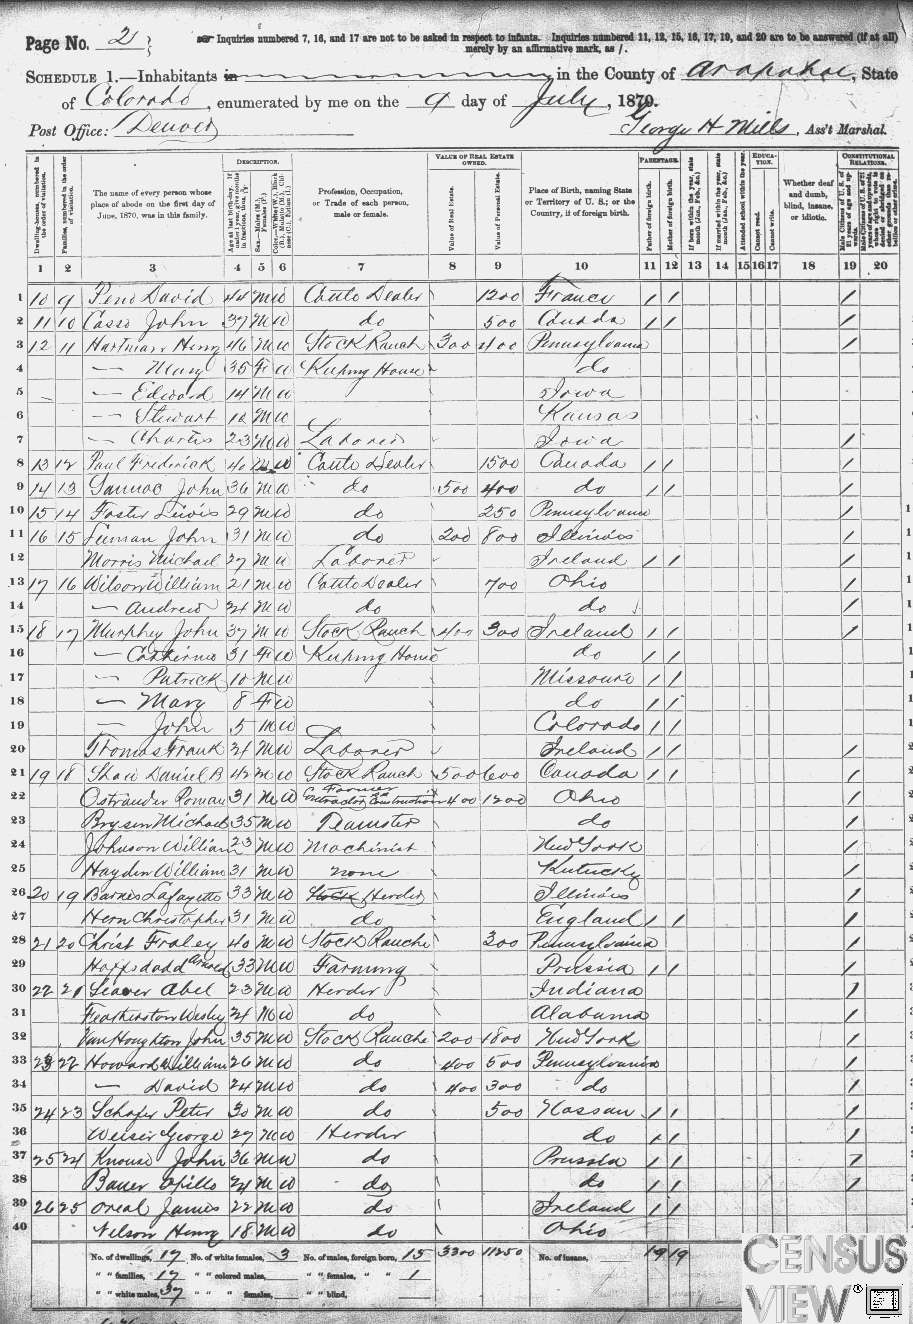 Page No. 2
Inquiries numbered 7, 16, and 17 are not to be asked in respect to infants. Inquiries numbered 11, 12, 15, 16, 17, 19, and 20 are to be answered (if at all)
merely by an affirmative mark, as /.
SCHEDULE 1.—Inhabitants in the County of Arapahoe, State
of Colorado, enumerated by me on the 9 day of July, 1870.
Post Office: Denver George H Mills, Ass't Marshal.
DESCRIPTION. VALUE OF REAL ESTATE OWNED. PARENTAGE. EDUCATION. CONSTITUTIONAL RELATIONS.
Dwelling-houses, numbered in the order of visitation. Families, numbered in the order of visitation. The name of every person whose place of abode on the first day of June, 1870, was in this family. Profession, Occupation, or Trade of each person, male or female. Value of Real Estate. Value of Personal Estate. Place of Birth, naming State or Territory of U. S.; or the Country, if of foreign birth. Father of foreign birth. Mother of foreign birth. Attended school within the year. Cannot read. Cannot write. Whether deaf and dumb, blind, insane, or idiotic.
1 2 3 4 5 6 7 8 9 10 11 12 13 14 15 16 17 18 19 20
1 10 9 David 44 M W Cattle Dealer 1200 France / / /
2 11 10 Casso John 37 M W do 500 Canada / / /
3 12 11 Hartman Henry 46 M W Stock Ranch 300 400 Pennsylvania /
4 — Mary 35 F W Keeping House do
5 — Edward 14 M W Iowa
6 — Stewart 12 M W Kansas
7 — Charles 23 M W Laborer Iowa /
8 13 12 Paul Frederick 40 M W Cattle Dealer 1500 Canada / / /
9 14 13 John 36 M W do 500 400 do / / /
10 15 14 Foster Lewis 29 M W do 250 Pennsylvania /
11 16 15 John 31 M W do 200 800 Illinois /
12 Morris Michael 27 M W Laborer Ireland / / /
13 17 16 Wilson William 21 M W Cattle Dealer 700 Ohio /
14 — Andrew 24 M W do do /
15 18 17 Murphey John 37 M W Stock Ranch 400 300 Ireland / / /
16 — Catherine 31 F W Keeping House do / /
17 — Patrick 10 M W Missouri / /
18 — Mary 8 F W do / /
19 — John 5 M W Colorado / /
20 Thomas Frank 24 M W Laborer Ireland / / /
21 19 18 Shaw Daniel B 42 M W Stock Ranch 500 600 Canada / / /
22 Ostrander Roman 31 M W Farmer 400 1200 Ohio /
23 Brysen Michael 35 M W Teamster do /
24 Johnson William 23 M W Machinist New York /
25 Hayden William 31 M W none Kutucky /
26 20 19 Barnes Lafayette 33 M W Herder Illinois /
27 Hern Christopher 31 M W do England / / /
28 21 20 Christ Fraley 40 M W Stock Ranche 300 Pennsylvania /
29 Arnold 33 M W Farming Prussia / / /
30 22 21 Abel 23 M W Herder Indiana /
31 Featherston Wesley 24 M W do Alabama /
32 Van Houghton John 35 M W Stock Ranche 200 1800 New York /
33 23 22 Howard William 26 M W do 400 500 Pennsylvania /
34 — David 24 M W do 400 300 do /
35 24 23 Schafer Peter 30 M W do 500 Nassau / / /
36 Weiser George 27 M W Herder do / / /
37 25 24 Knouse John 36 M W do Prussia / / /
38 Bauer 24 M W do do / / /
39 26 25 Oreal James 22 M W do Ireland / /
40 Nelson Henry 18 M W do Ohio
No. of dwellings, 17 No. of white females, 3 No. of males, foreign born, 15 3300 11250 No. of insane, 19 19
" " families, 17 " " colored males, " " females, " " 1
" " white males, 37 " " " females, " " blind,
CENSUS
VIEW®